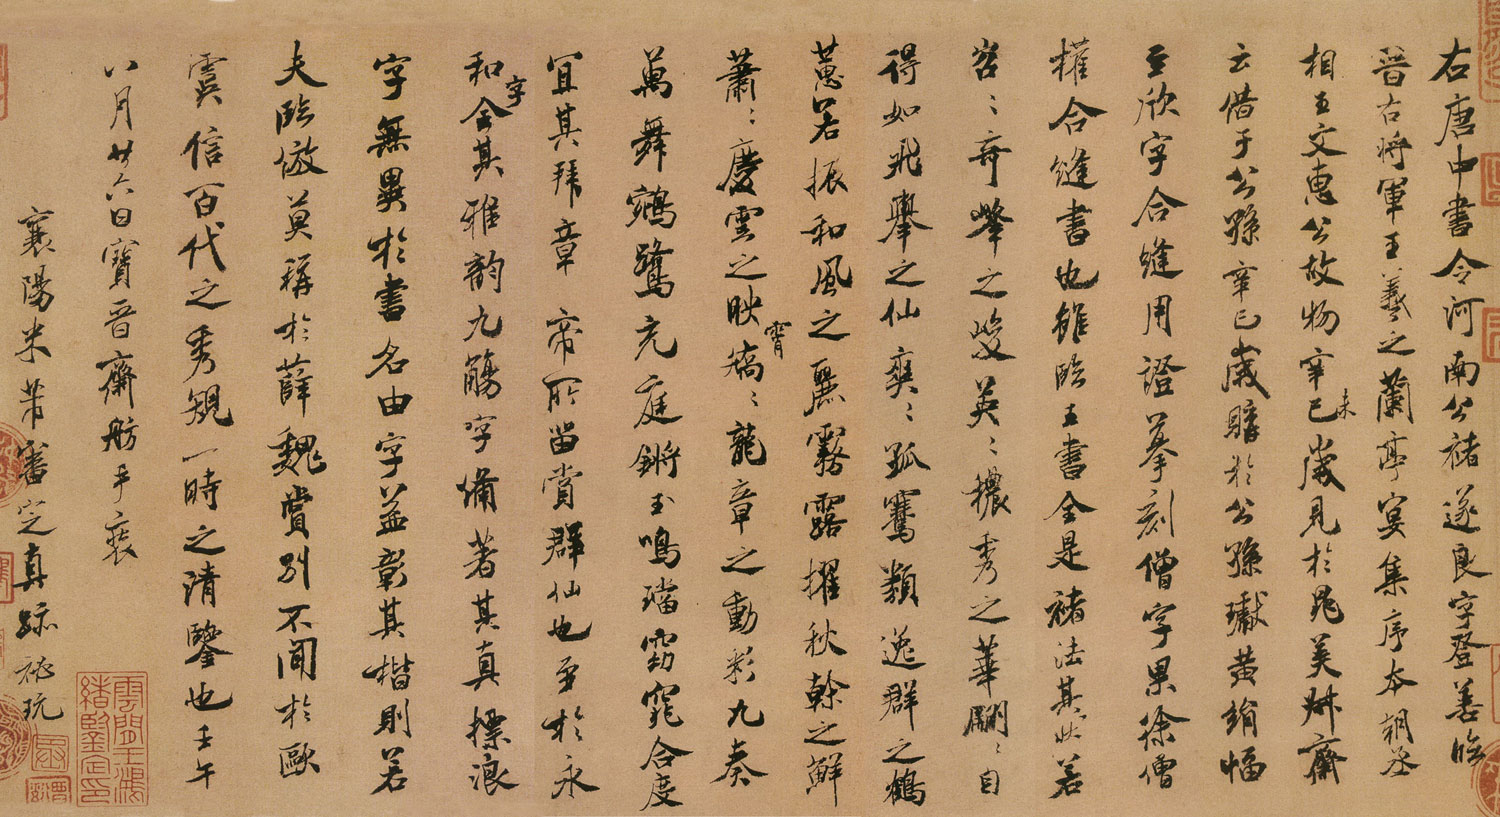 右唐中書令河南公褚遂良字登善臨
晉右將軍王羲之蘭亭宴集序本朝丞
相王文惠公故物辛巳未歲見於晁美叔齋
云借于公孫辛巳歲購於公孫瓛黃絹幅
至欣字合縫用證摹刻僧字果徐僧
權合縫書也雖臨王書全是褚法其狀若
岩〻奇峯之峻英〻穠秀之華翩〻自
得如飛舉之仙爽〻孤騫類逸群之鶴
蕙若振和風之麗霧露擢秋幹之鮮
蕭〻慶雲之映霄矯〻龍章之動彩九奏
萬舞鵷鷺充庭鏘玉鳴璫窈窕合度
宜其拜章 帝所留賞群仙也至於永
和字合其雅韵九觴字備著其真摽浪
字無異於書名由字益彰其楷則若
夫臨倣莫稱於薛魏賞別不聞於歐
虞信百代之秀規一時之清鑒也壬午
八月廿六日寶晉齋舫手裝
襄陽米芾審定真跡秘玩